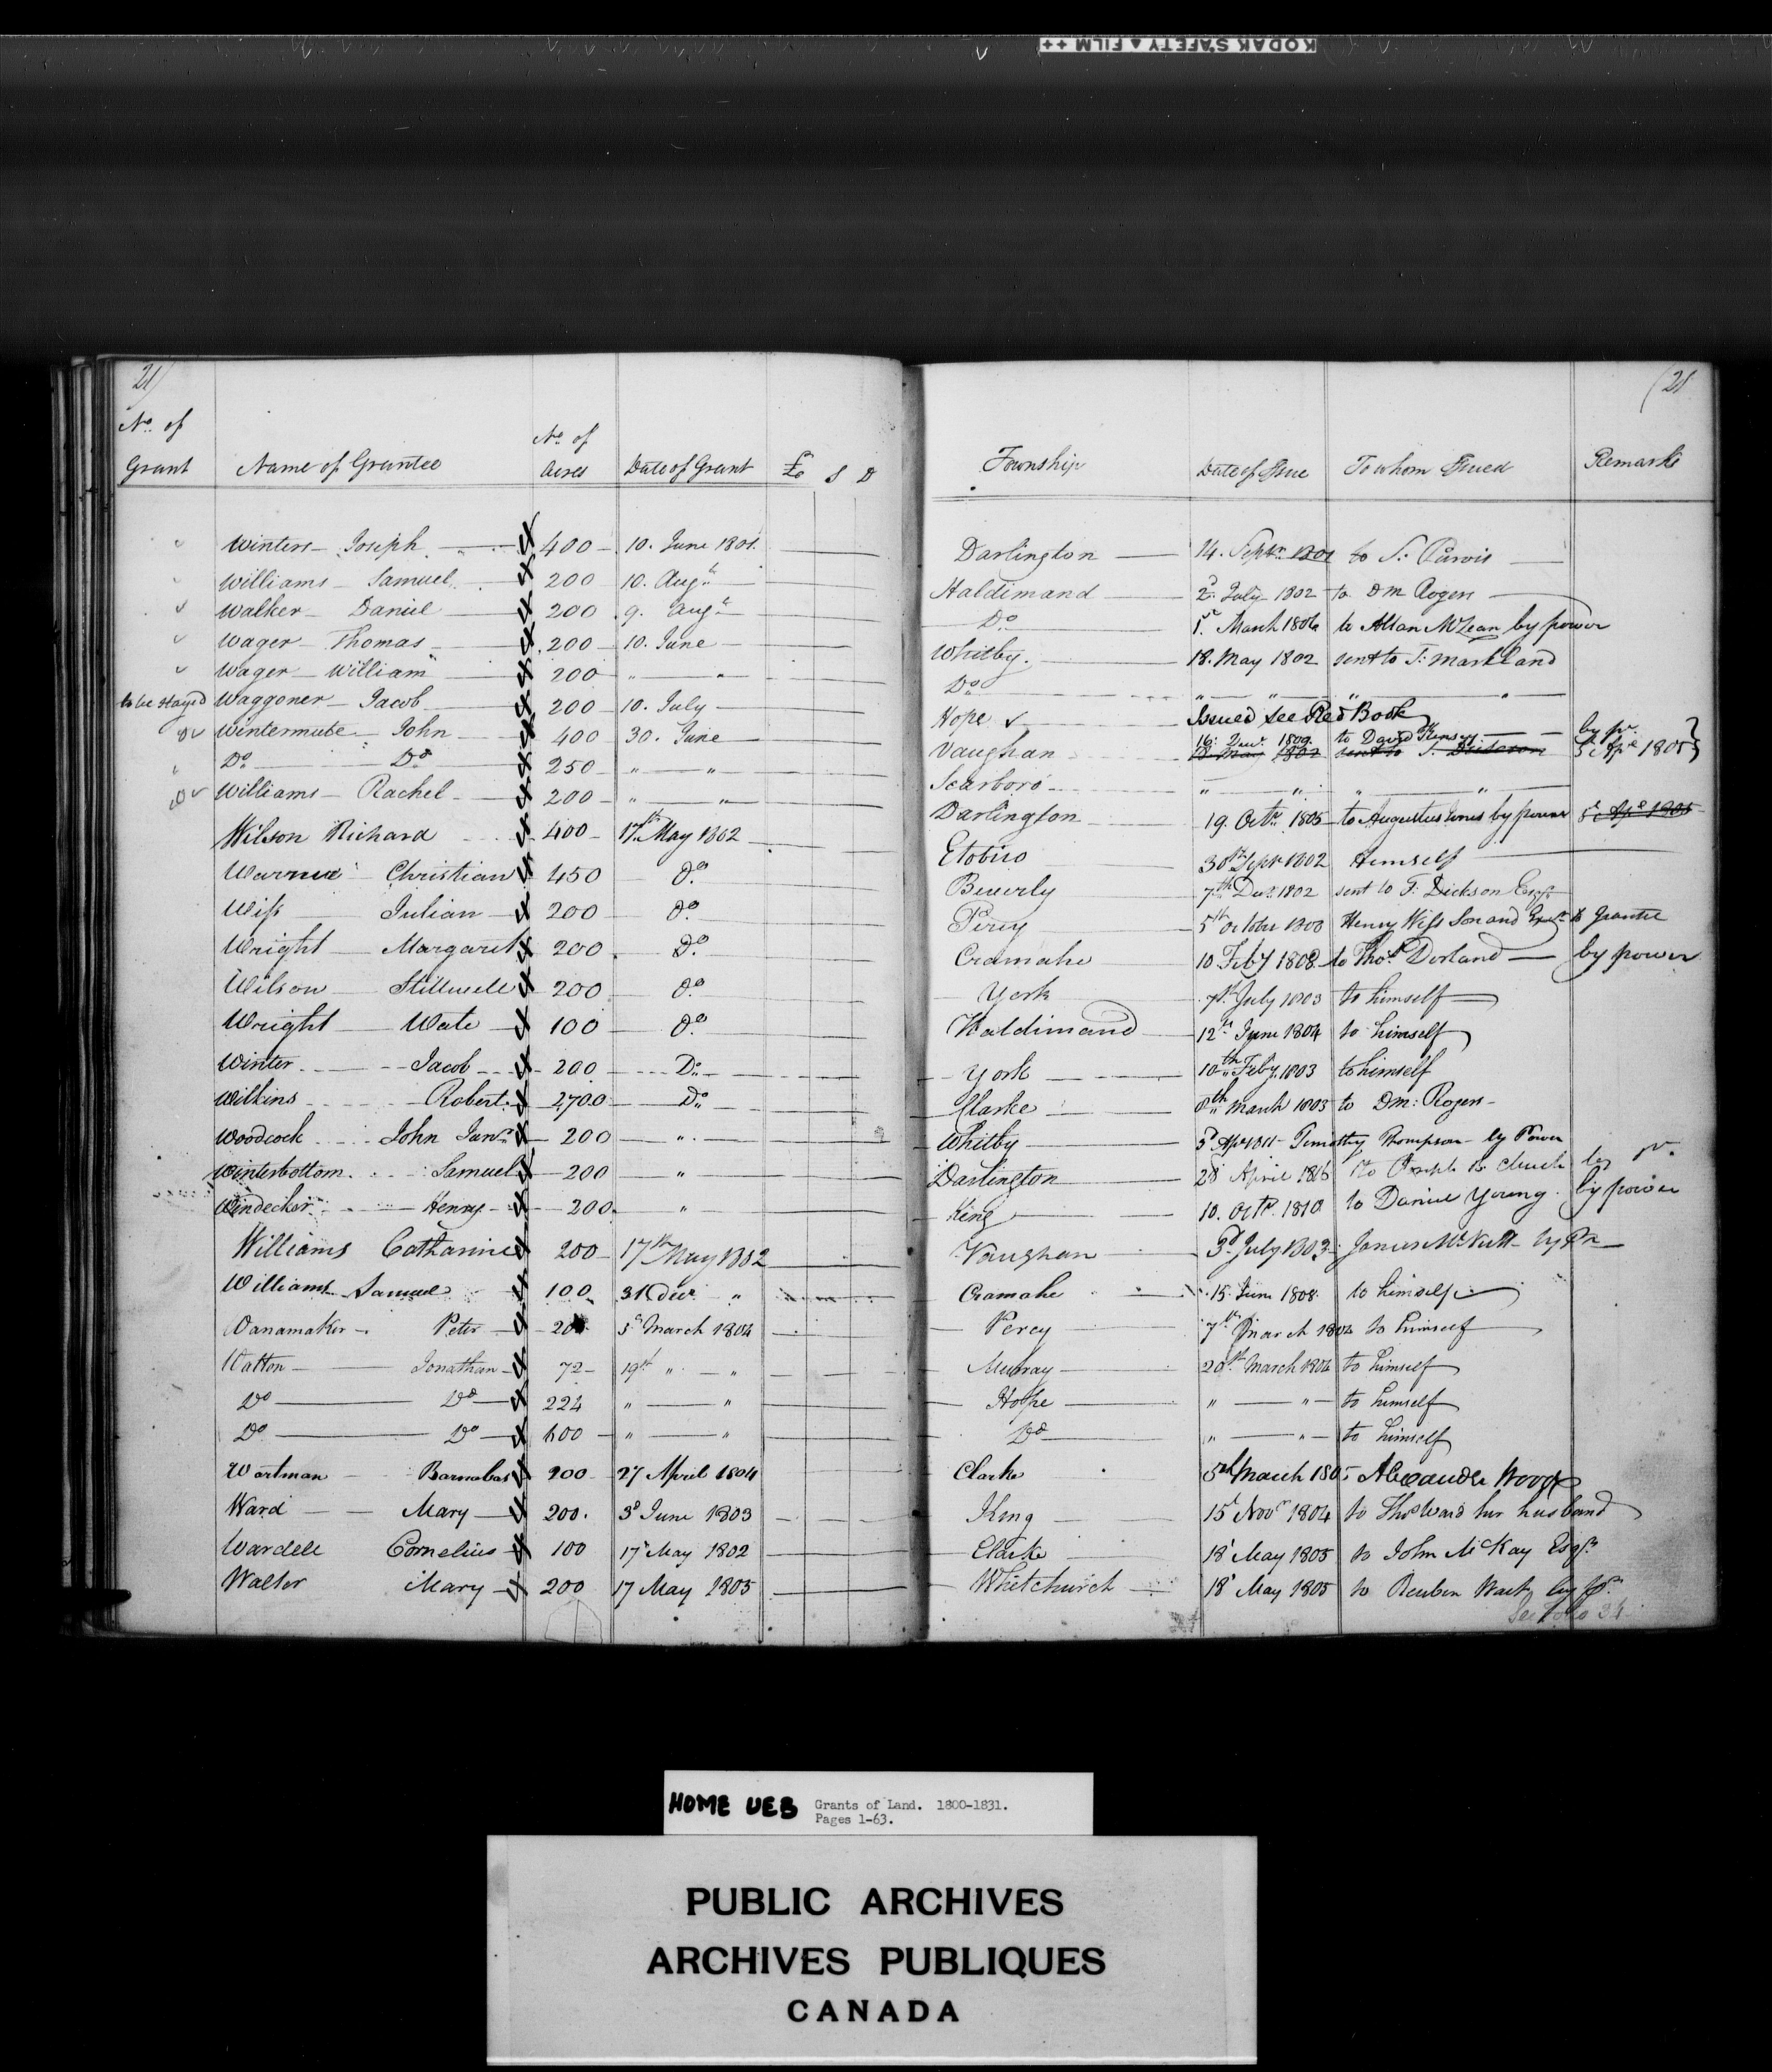 KODAK SAFETY ▲ FILM ++
21)
(21
No. of Grant Name of Grantee No. of Acres Date of Grant £ S D Township Date of Issue To whom Issued Remarks
Winters Joseph 400 10. June 1801. Darlington 14. Septr. 1801 to S. Purvis
Williams Samuel 200 10. Augt. Haldimand 2d. July 1802 to Dm Rogers
Walker Daniel 200 9. Augt. Do 1st. March 1806 to Allan McLean by power
Wager Thomas 200 10. June Whitby. 18. May 1802 sent to T: Markland
Wager William 200 " " Do " " " "
to be stayed Waggoner Jacob 200 10. July Hope Issued see Red Book
Wintermute John 400 30. June Vaughan 16. 1809. to David by pr.
18 May 1802 sent to T. Dickson 5 Apl 1805
Do Do 250 " " Scarboro " " " "
Williams Rachel 200 " " Darlington 19. Octr. 1805 to Augustus Jones by power 5 Apl 1805
Wilson Richard 400 17th May 1802 Etobico 30th Sepr 1802 Himself
Warner Christian 450 Do. Beverly 7th Decr. 1802 sent to T. Dickson Esqr.
Wiss Julian 200 Do. Percy 5th October 1808 Henry Wiss Son and to Grantee
Wright Margaret 200 Do. Cramahe 10 Feby 1808 to Thos. Dorland by power
Wilson Stillwell 200 Do. York 7th. July 1803 to himself
Wright Wate 100 Do. Haldimand 12th June 1804 to himself
Winter Jacob 200 Do. York 10th Feby. 1803 to himself
Wilkins Robert. 2700 Do. Clarke 8th March 1803 to Dm: Rogers
Woodcock John Junr. 200 " Whitby 3d Apr 1811 Timothy Thompson by Power
Winterbottom Samuel 200 " Darlington 28 April 1816 to by pr.
Windecker Henry 200. " King 10. Octr. 1810 to Daniel Young. by power
Williams Catharine 200 17th May 1802 Vaughan 3d. July 1803 James McNutt by Pr
Williams Samuel 100 31 Decr " Cramahe 15. June 1808. to himself
Wanamaker Peter 200 3d March 1804 Percy 7th March 1804 to himself
Walton Jonathan 72 19th " " Murray 20th March 1804 to himself
Do Do 224 " " Hope " " to himself
Do Do 600 " " Do " " to himself
Wartman Barnabas 200 27 April 1804 Clarke 5th March 1805 Alexander Wood
Ward Mary 200. 3d June 1803 King 15t Novr 1804 to Thos Ward her husband
Wardell Cornelius 100 17 May 1802 Clarke 18 May 1805 to John McKay Esqr.
Walter Mary 200 17 May 1805 Whitchurch 18 May 1805 to Reuben by pr.
See Folio 34
HOME UEB Grants of Land. 1800-1831.
Pages 1-63.
PUBLIC ARCHIVES
ARCHIVES PUBLIQUES
CANADA